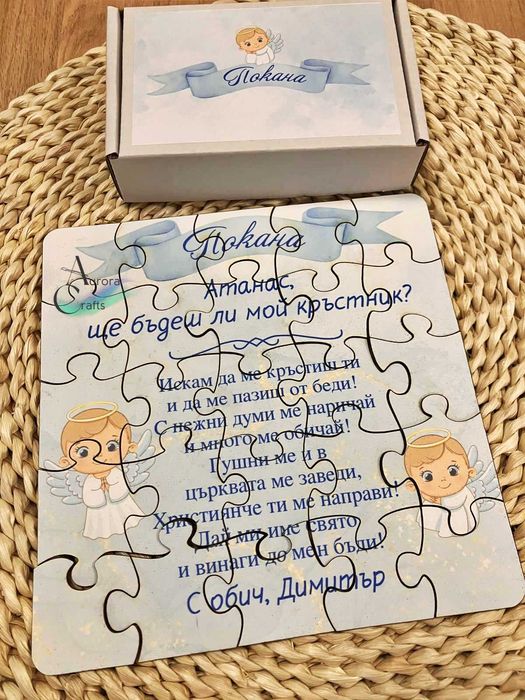 Покана
Покана
Aurora
Crafts
Атанас,
ще бъдеш ли мой кръстник?
Искам да ме кръстиш ти
и да ме пазиш от беди!
С нежни думи ме наричай
и много ме обичай!
Гушни ме и в
църквата ме заведи,
Християнче ти ме направи!
Дай ми име свято
и винаги до мен бъди!
С обич, Димитър